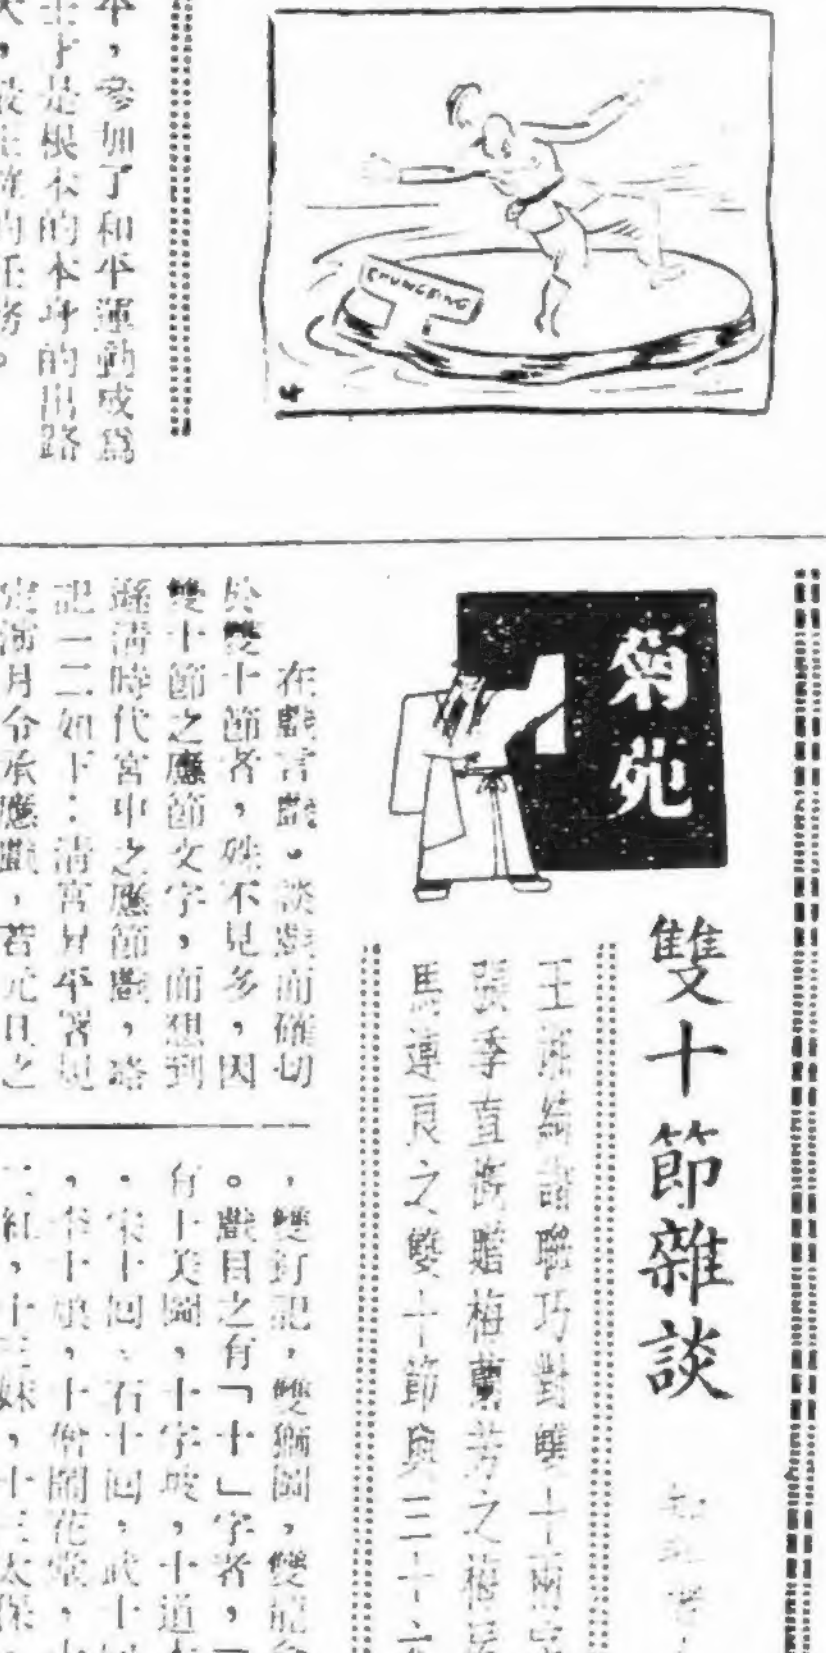 本，參加了和平運動成爲
才是根本的本身的出路
的任務。
CHUNGKING
菊苑
雙十節雜談
王 綺語聯巧對雙十兩字
張季直 贈梅蘭芳之梅
馬連良之雙十節與三十六
在戲言戲。談戲而確切
於雙十節者，殊不見多，因
雙十節之應節文字，而想到
遜清時代宮中之應節戲，略
記一二如下：清宮昇平署規
定演月令承應戲，若元旦之
，雙釘記，雙獅圖，雙龍會
。戲目之有「十」字者，
有十美圖，十字坡，十道本
，宋十回、石十回，武十回
，李十娘，十僧鬧花堂，十
紅，十三妹，十三太保，